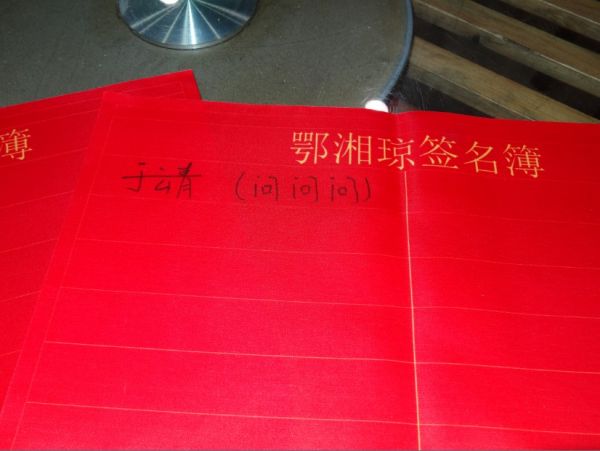 簿
鄂湘琼签名簿
于靖 (问问问)